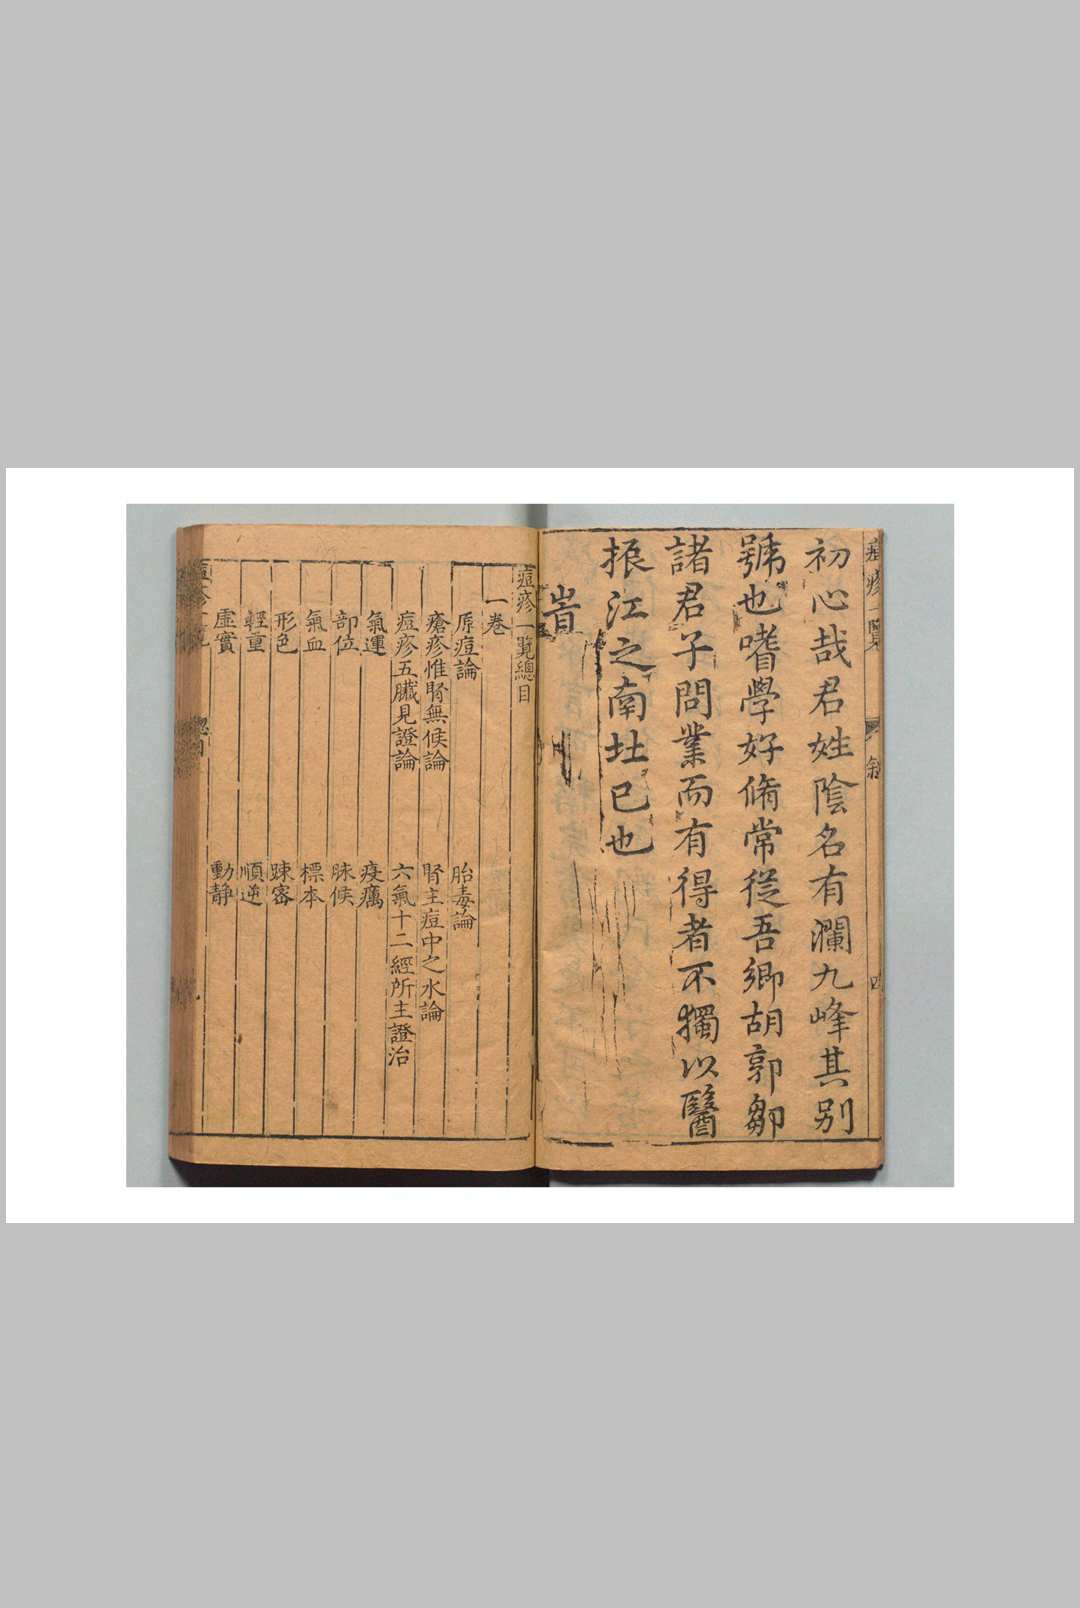 初心哉君姓陰名有瀾九峰其别
號也嗜學好脩常從吾鄉胡郭鄒
諸君子問業而有得者不獨以醫
振江之南址已也
旹
痘疹一覽總目
一卷
原痘論 胎毒論
瘡疹惟腎無候論 腎主痘中之水論
痘疹五臟見證論 六氣十二經所主證治
氣運 疫癘
部位 脉候
氣血 標本
形色 踈密
輕重 順逆
虛實 動靜